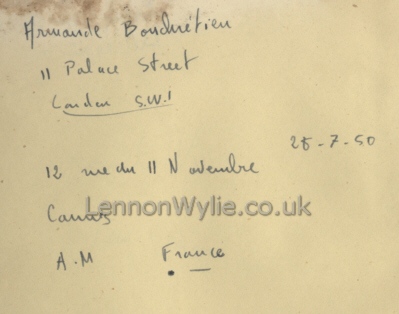 Armande Bonchrétien
11 Palace Street
London S.W.1
25-7-50
12 rue du 11 Novembre
LennonWylie.co.uk
A.M France